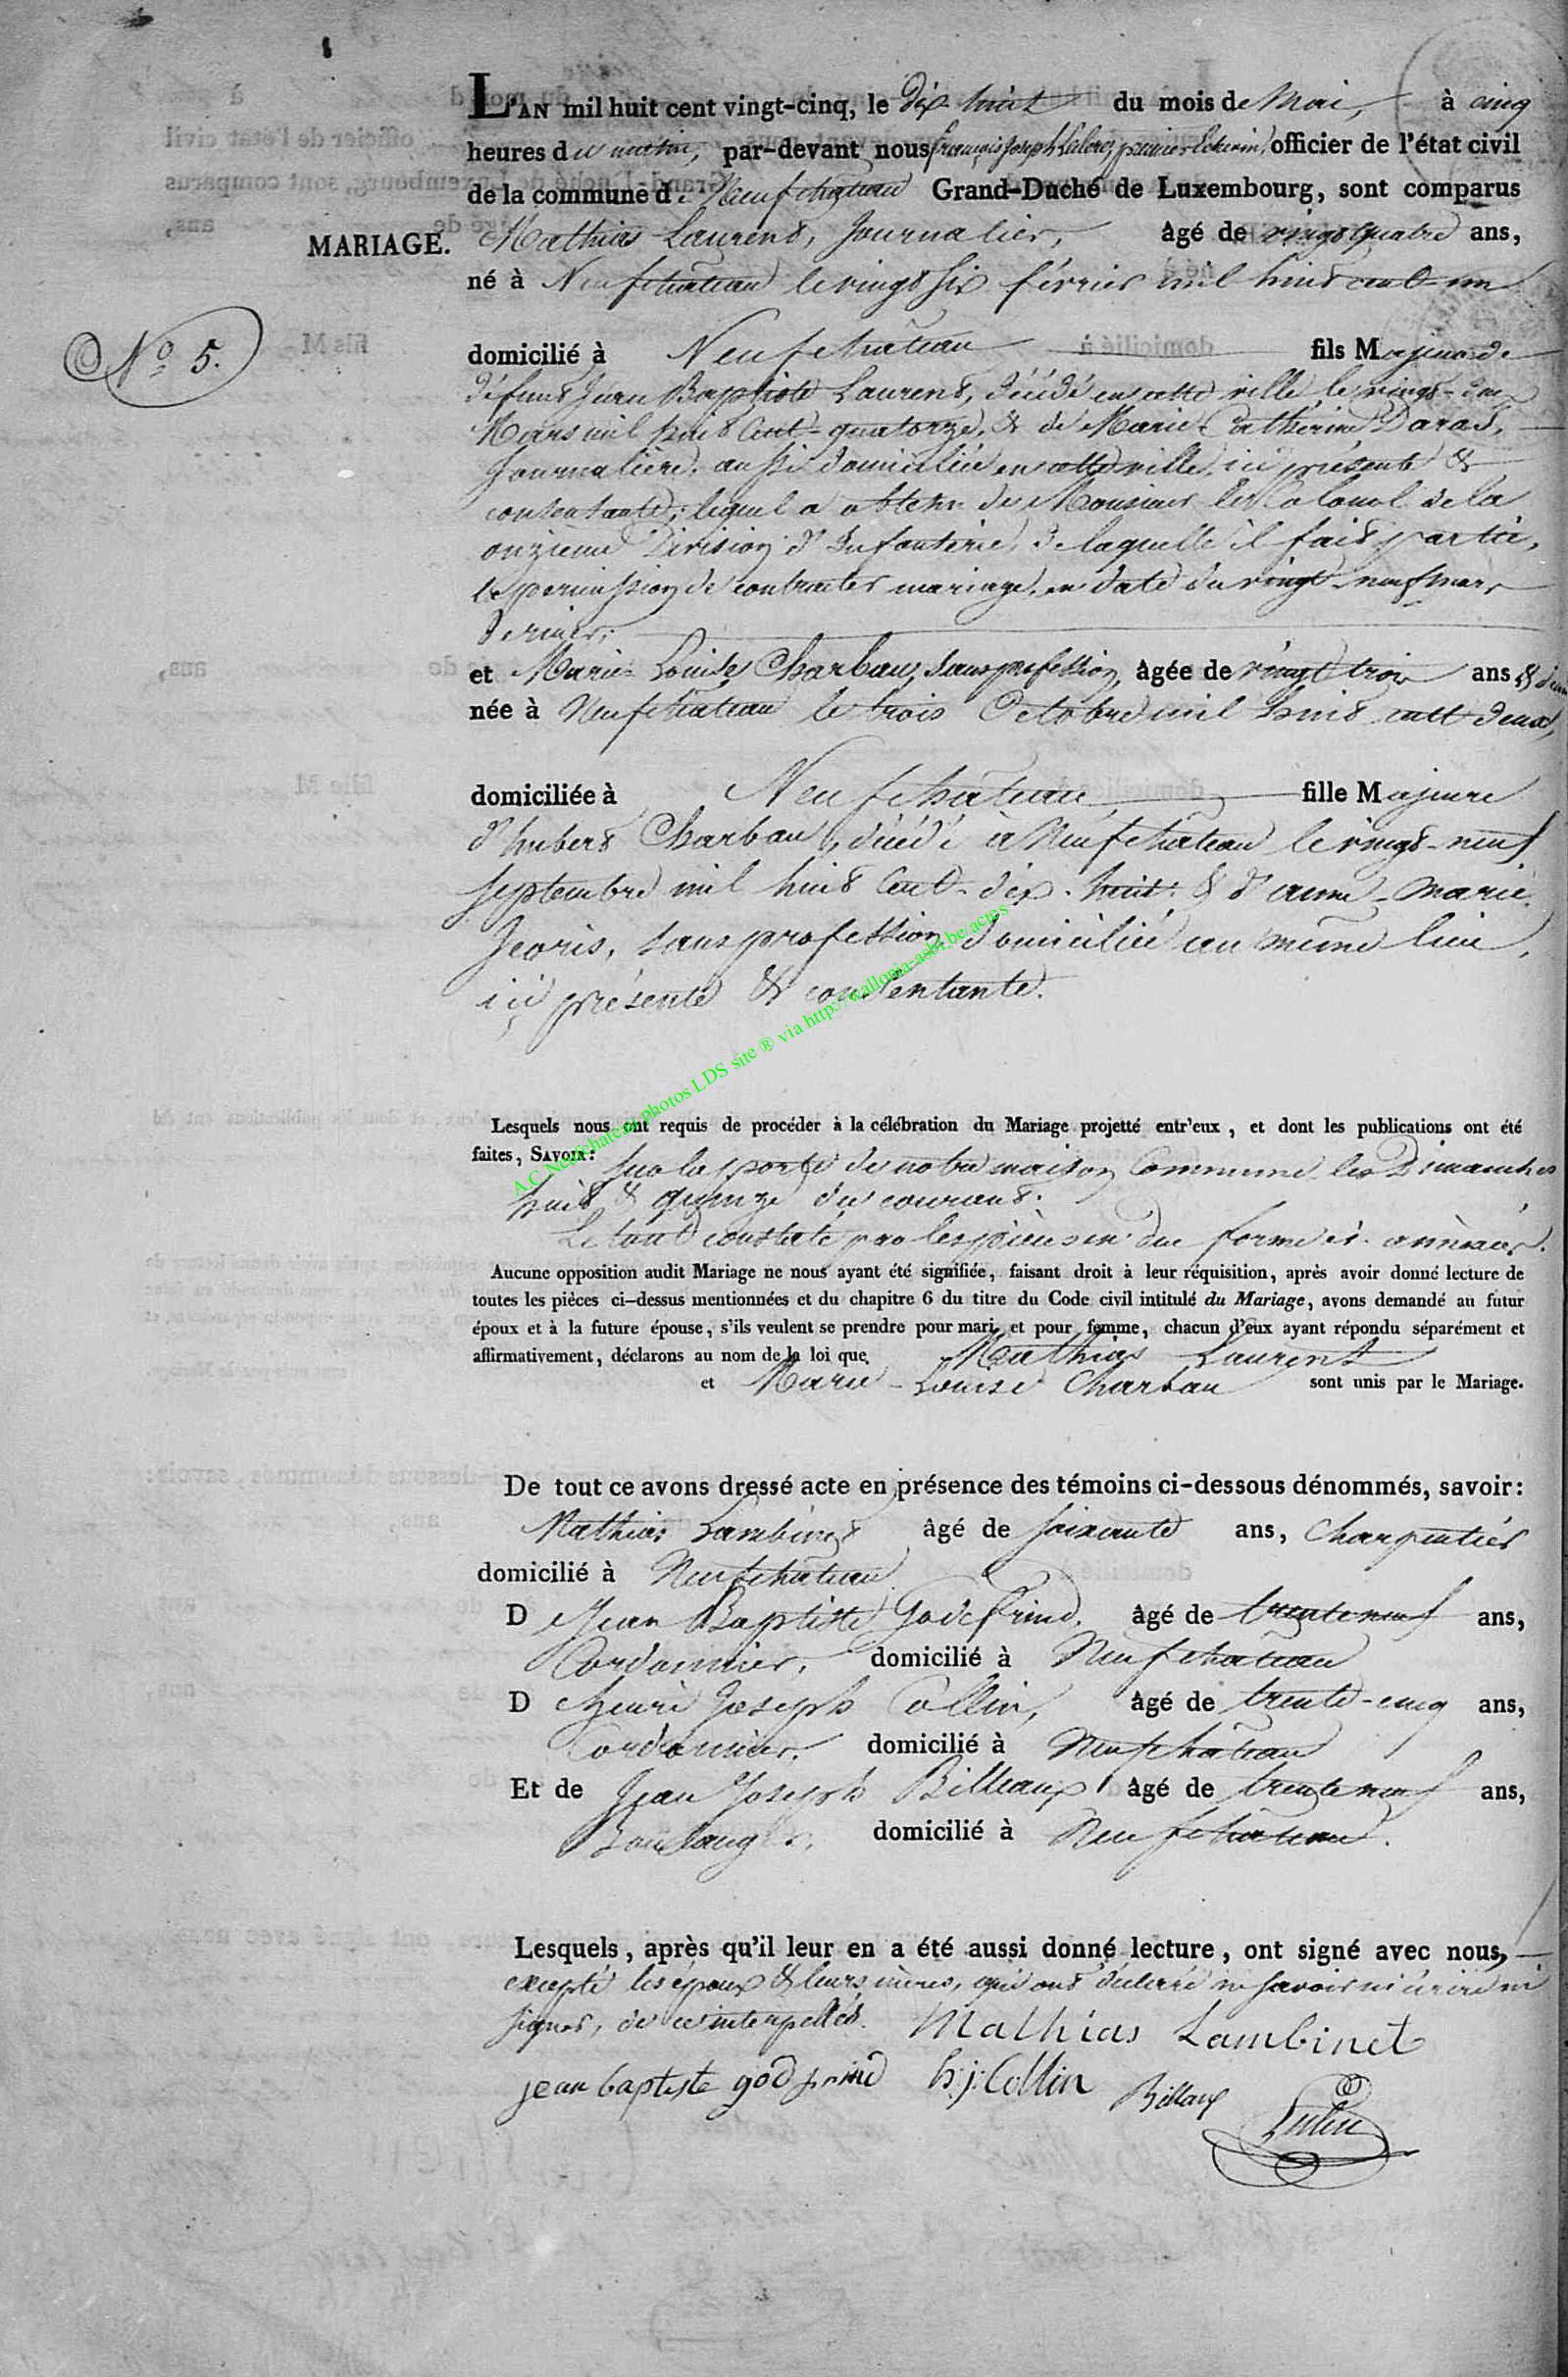 L'AN mil huit cent vingt-cinq, le dix huit du mois de Mai, à cinq
heures du matin, par-devant nous françois Joseph premier Echevin, officier de l'état civil
de la commune de Neufchateau Grand-Duché de Luxembourg, sont comparus
MARIAGE. Mathias Laurent, Journalier, âgé de vingt quatre ans,
né à Neufchateau le vingt six février mil huit cent un
N° 5.
domicilié à Neufchâteau fils Majeur de
défunt Jean Baptiste Laurent, décédé en cette ville le vingt-
Mars mil huit Cent-quatorze, & de Marie Catherine Daras,
Journalière, aussi domiciliée en cette ville, ici présente &
consentante; lequel a obtenu de Monsieur le Colonel de la
onzieme Division d'Infanterie, de laquelle il fait partie,
la permission de contracter mariage, en date du vingt-neuf mars
dernier;
et Marie Louise Charbau, sans profession, âgée de vingt trois ans &
née à Neufchateau le trois Octobre mil huit cent deux,
domiciliée à Neufchâteau, fille Majeure
d'hubert Charbau, décédé à Neufchâteau le vingt-neuf
septembre mil huit Cent-dix-huit & d'anne-marie
Jeoris, sans profession, domiciliée au même lieu,
ici présente & consentante.
A.C. Neufchateau photos LDS site ® via http://wallonia-asbl.be/actes
Lesquels nous ont requis de procéder à la célébration du Mariage projetté entr'eux, et dont les publications ont été
faites, SAVOIR: sur la porte de notre maison Commune les Dimanches
huit & quinze du courant.
Le tout constaté par les pièces en due forme ci-annexées.
Aucune opposition audit Mariage ne nous ayant été signifiée, faisant droit à leur réquisition, après avoir donné lecture de
toutes les pièces ci-dessus mentionnées et du chapitre 6 du titre du Code civil intitulé du Mariage, avons demandé au futur
époux et à la future épouse, s'ils veulent se prendre pour mari et pour femme, chacun d'eux ayant répondu séparément et
affirmativement, déclarons au nom de la loi que Mathias Laurent
et Marie-Louise Charbau sont unis par le Mariage.
De tout ce avons dressé acte en présence des témoins ci-dessous dénommés, savoir:
Mathias Lambinet âgé de soixante ans, Charpentier
domicilié à Neufchateau
D Jean Baptiste Godefrind, âgé de trente neuf ans,
Cordonnier, domicilié à Neufchateau
D henri Joseph Collin, âgé de trente-cinq ans,
Cordonnier, domicilié à Neufchateau
Et de Jean Joseph Billeaux âgé de trente neuf ans,
Boulanger, domicilié à Neufchateau.
Lesquels, après qu'il leur en a été aussi donné lecture, ont signé avec nous,
excepté les époux & leurs mères, qui ont déclaré ne savoir ni écrire ni
signer, de ce interpellés. Mathias Lambinet
jean baptiste godfrind h:j:Collin Billaux